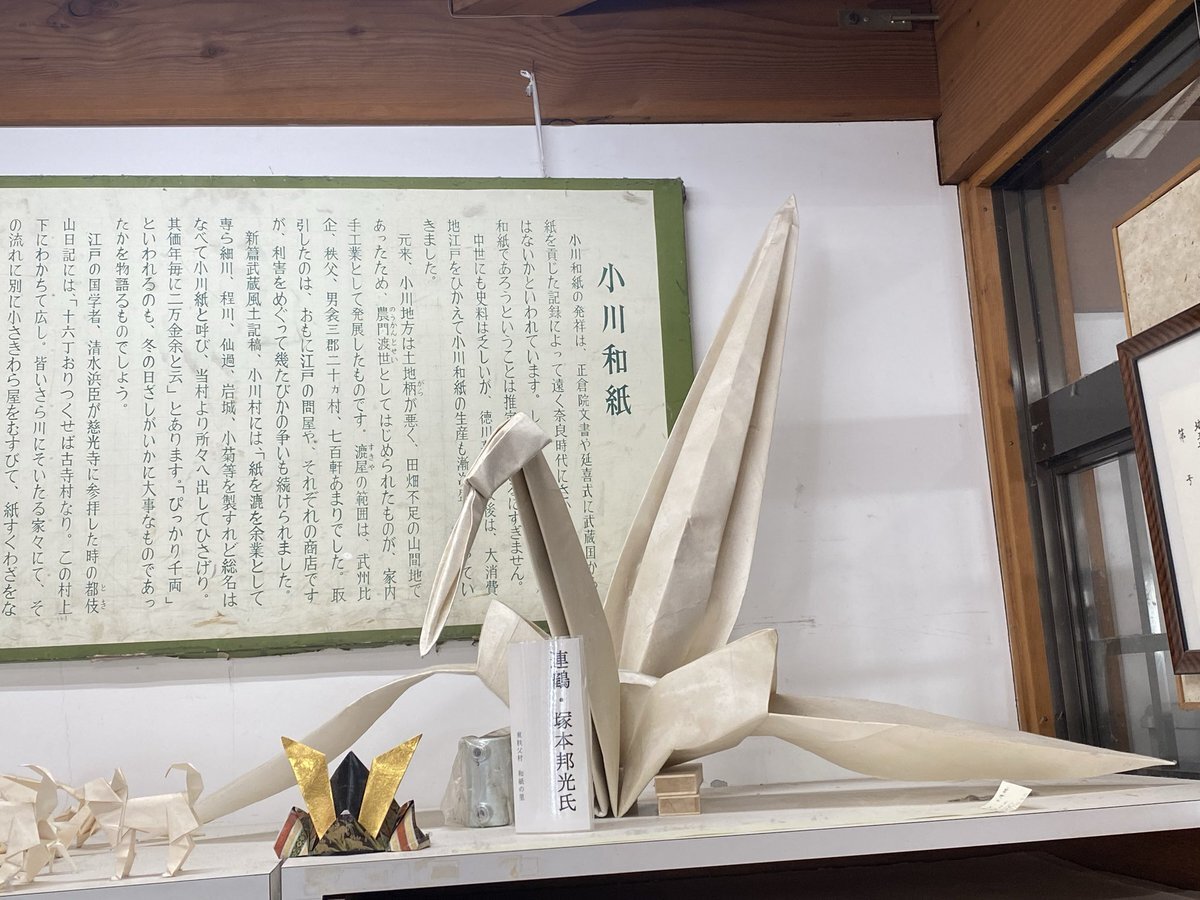 小川和紙
小川和紙の発祥は、正倉院文書や延喜式に武蔵国か
紙を貢じた記録によって遠く奈良時代にさ
はないかといわれています。し
和紙であろうということは推定 るにすぎません。
中世にも史料は乏しいが、徳川 後は、大消費
地江戸をひかえて小川和紙の生産も漸 てい
きました。
元来、小川地方は土地柄が悪く、田畑不足の山間地で
あったため、農閂渡世としてはじめられたものが、家内
手工業として発展したものです。漉屋の範囲は、武州比
企、秩父、男衾三郡二十ヵ村、七百軒あまりでした。取
引したのは、おもに江戸の問屋や、それぞれの商店です
が、利害をめぐって幾たびかの争いも続けられました。
新篇武蔵風土記稿、小川村には、「紙を漉を余業として
専ら細川、程川、仙過、岩城、小菊等を製すれど総名は
なべて小川紙と呼び、当村より所々へ出してひさげり。
其価年毎に二万金余と云」とあります。「ぴっかり千両」
といわれるのも、冬の日さしがいかに大事なものであっ
たかを物語るものでしょう。
江戸の国学者、清水浜臣が慈光寺に参拝した時の都伎
山日記には、「十六丁おりつくせば古寺村なり。この村上
下にわかちて広し。皆いさら川にそいたる家々にて、そ
の流れに別に小さきわら屋をむすびて、紙すくわざをな
連鶴・塚本邦光氏
東秩父村 和紙の里
第